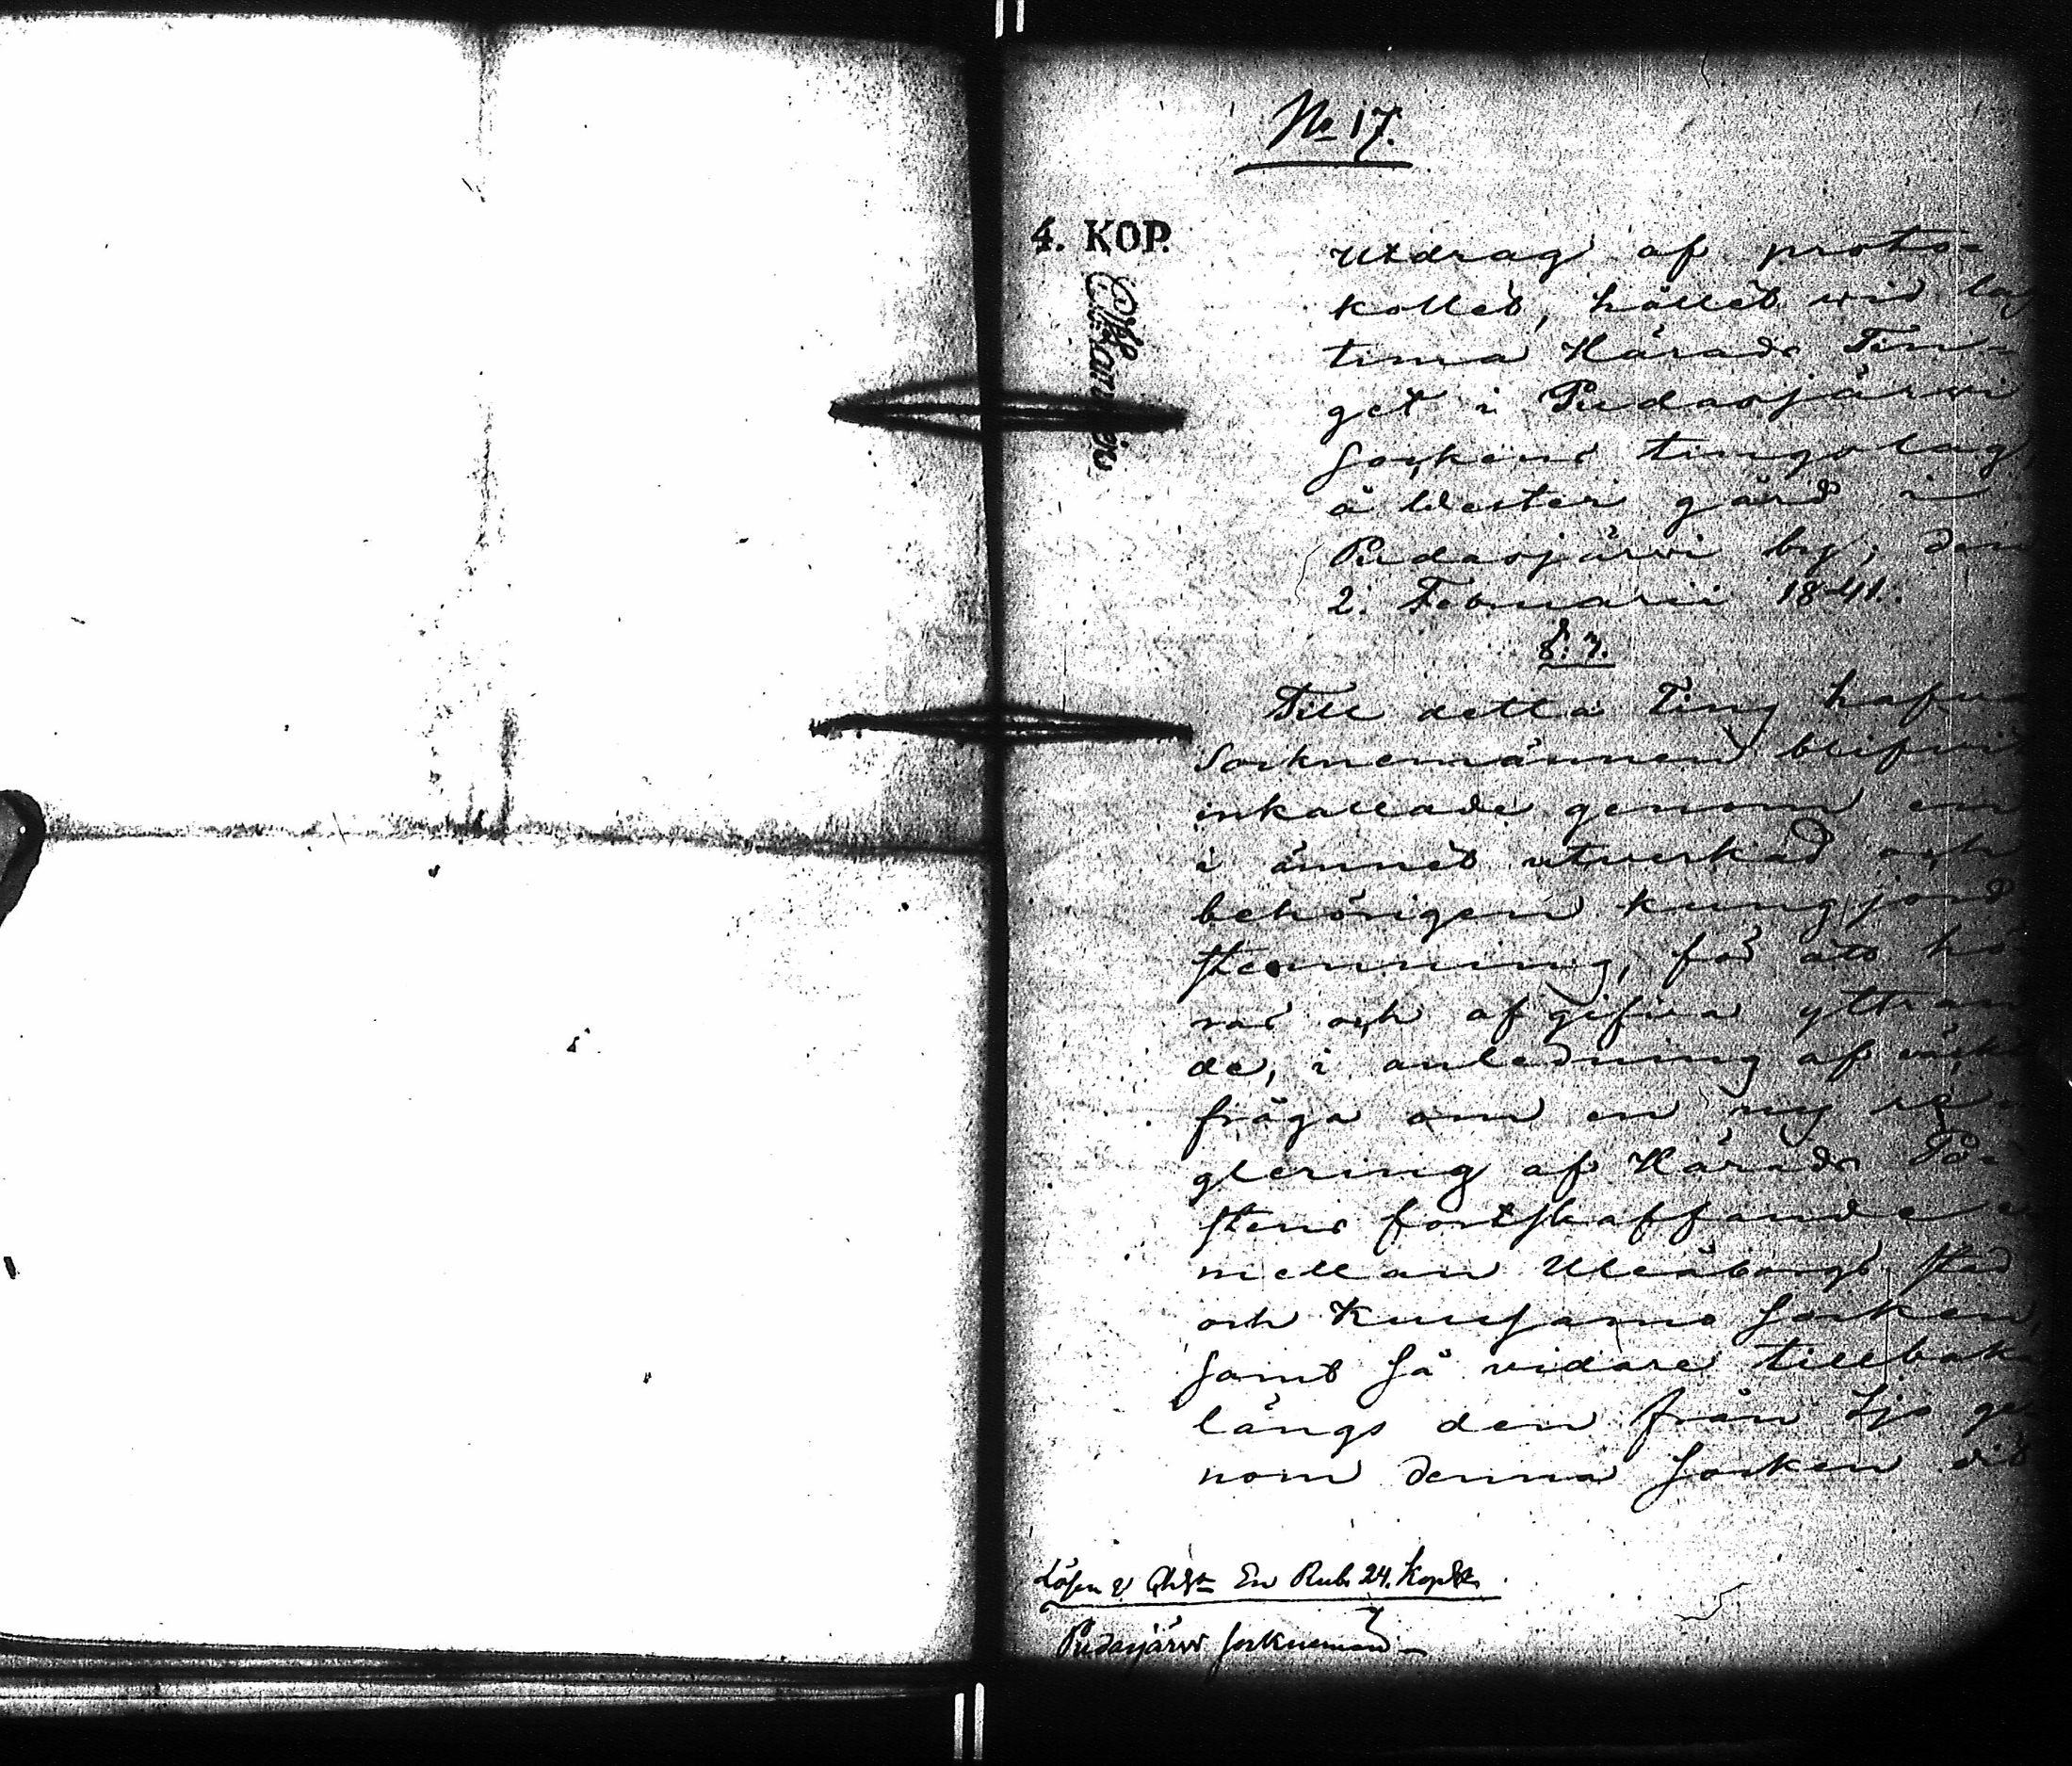 No 17.
4. KOP.
Utdrag af proto=
kollet, hållet wid lag
tima Härads Tin=
get i Pudasjärwi
Sockens tingslag,
å Westeri gård i
Pudasjärwi by, den
2. Februarii 1841.
§. 3.
Till detta Ting hafwa
Socknemännen blifwit
inkallade genom en
i ämnet utwerkad och
behörigen kungjord
stemning, för att hö=
ras och afgifwa yttran
de, i anledning af wäckt
fråga om en ny re=
glering af Härads På=
stens fortskaffande
mellan Uleåborgs stad
och Kuusamo Socken,
samt så vidare tillbaka
längs den från Ijo ge=
nom denna Socken
Lösen En Rub. 24. Kop.
Pudasjärwi Socknemän